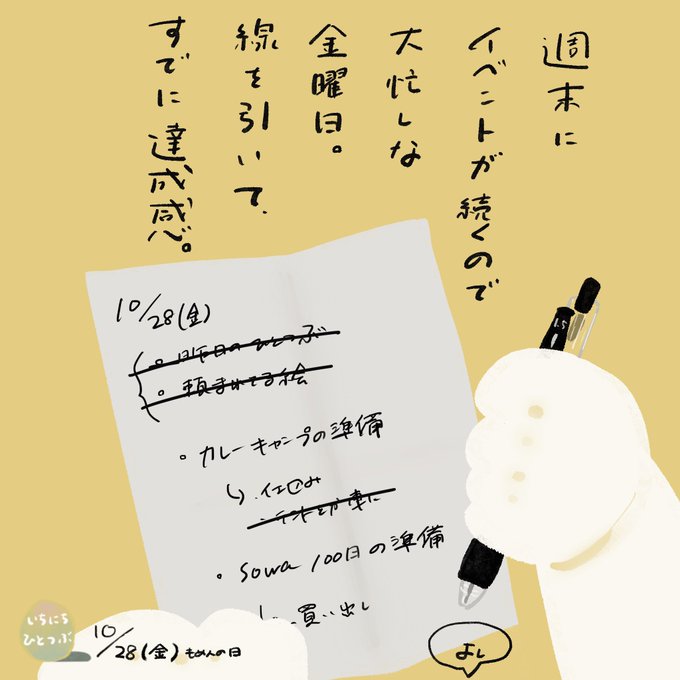 週末に
イベントが続くので
大忙しな
金曜日。
線を引いて、
すでに達成感。
10/28(金)
。昨日のひとつぶ
。頼まれてる絵
。カレーキャンプの準備
↳・仕込み
・テントとか車に
。sowa 100日の準備
↳・買い出し
1.5
よし
いちにち
ひとつぶ
10/28(金)もめんの日